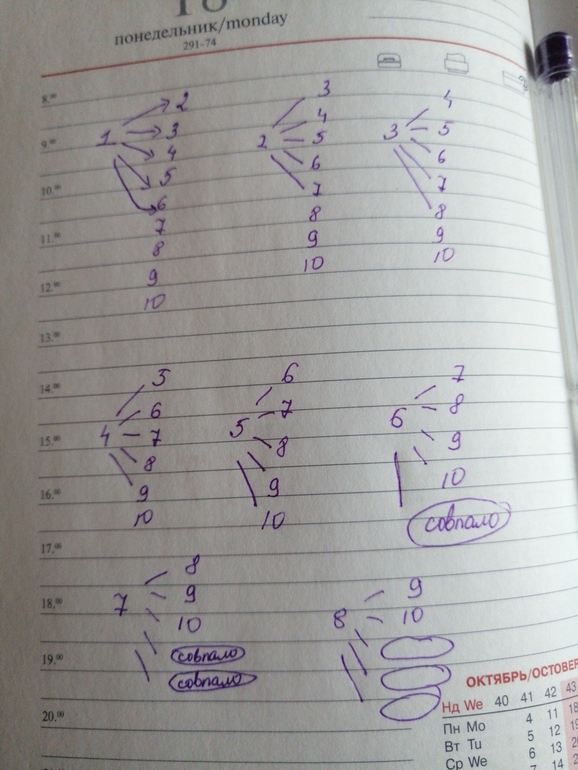 понедельник/monday
291-74
8.00
9.00
10.00
11.00
12.00
13.00
14.00
15.00
16.00
17.00
18.00
19.00
20.00
1
2
3
4
5
6
7
8
9
10
2
3
4
5
6
7
8
9
10
3
4
5
6
7
8
9
10
4
5
6
7
8
9
10
5
6
7
8
9
10
6
7
8
9
10
совпало
7
8
9
10
совпало
совпало
8
9
10
ОКТЯБРЬ/OCTOBER
Нд We 40 41 42 43
Пн Mo 4 11 18
Вт Tu 5 12 19
Ср We 6 13 20
7 14